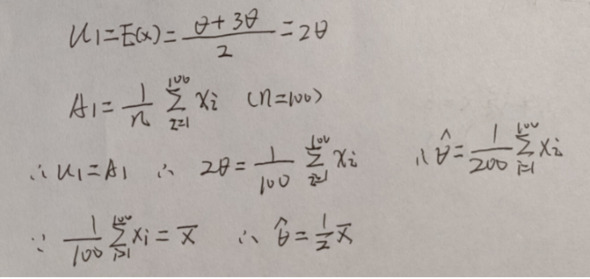 u₁=E(x)=\frac{θ+3θ}{2}=2θ
A₁=\frac{1}{n}\sum_{i=1}^{100} xᵢ (n=100)
∴ u₁=A₁ ∴ 2θ=\frac{1}{100}\sum_{i=1}^{100} xᵢ ∴ \hat{θ}=\frac{1}{200}\sum_{i=1}^{100} xᵢ
∵ \frac{1}{100}\sum_{i=1}^{100} xᵢ=\overline{x} ∴ \hat{θ}=\frac{1}{2}\overline{x}